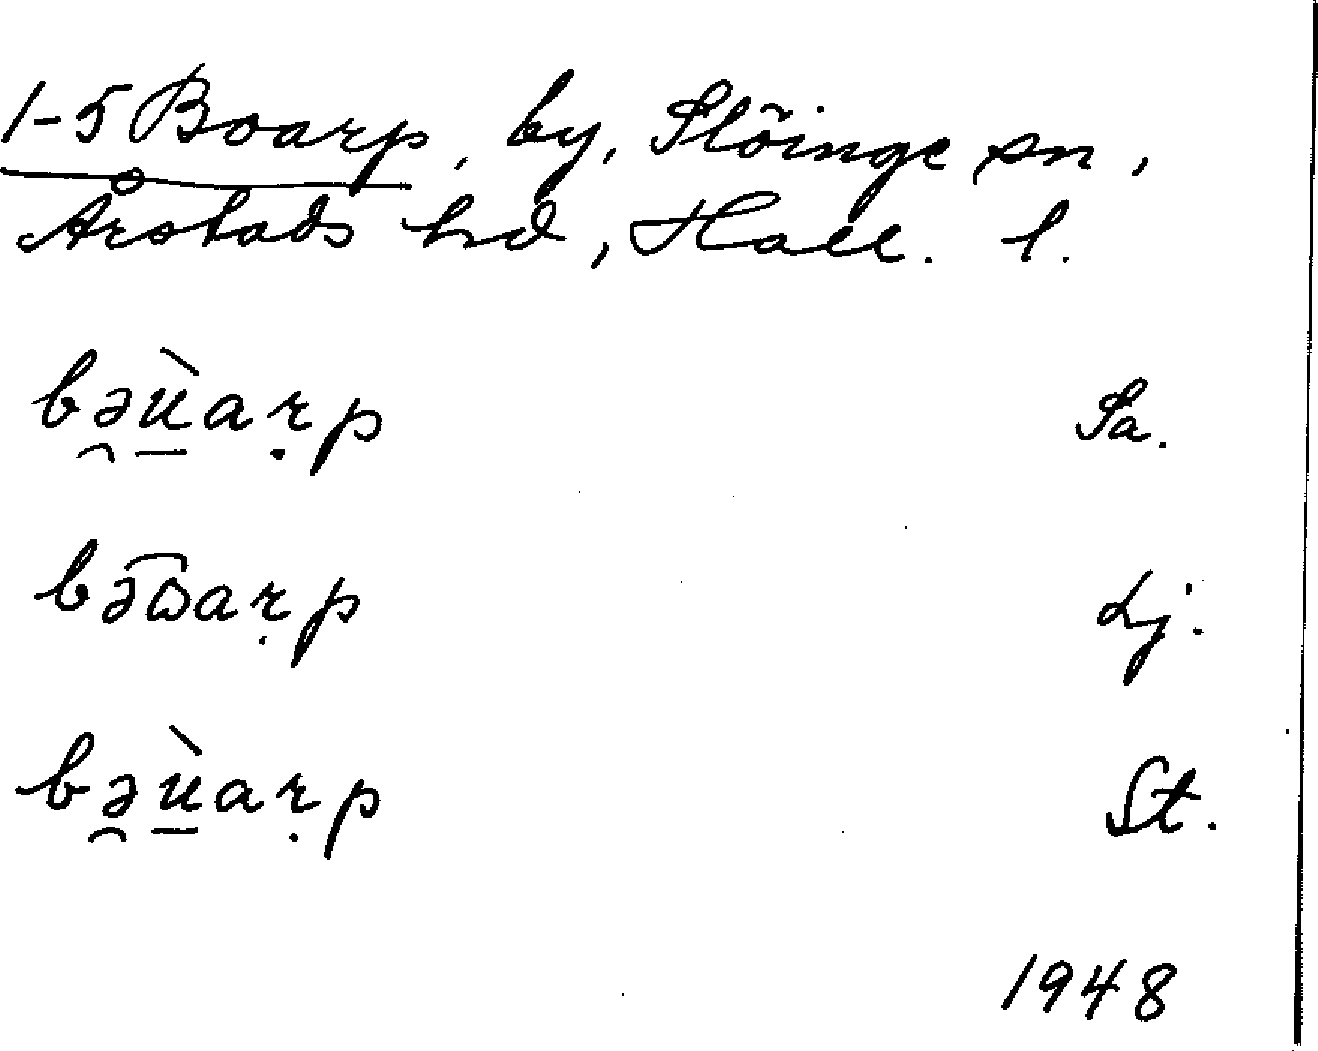 1-5 Boarp, by, Slöinge sn,
Årstads hd, Hall. l.
bə̯ù̱aṛp Sa.
bəωaṛp Lj.
bə̯ù̱aṛp St.
1948